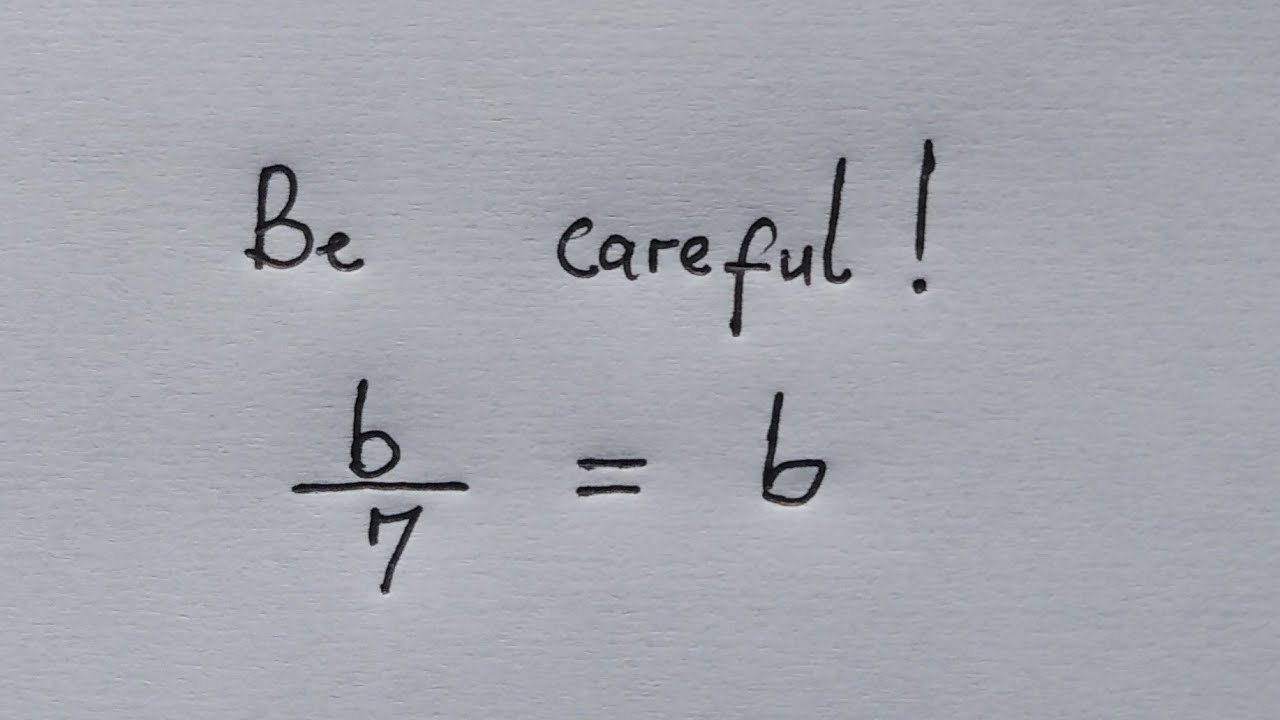 Be careful!
b/7 = b